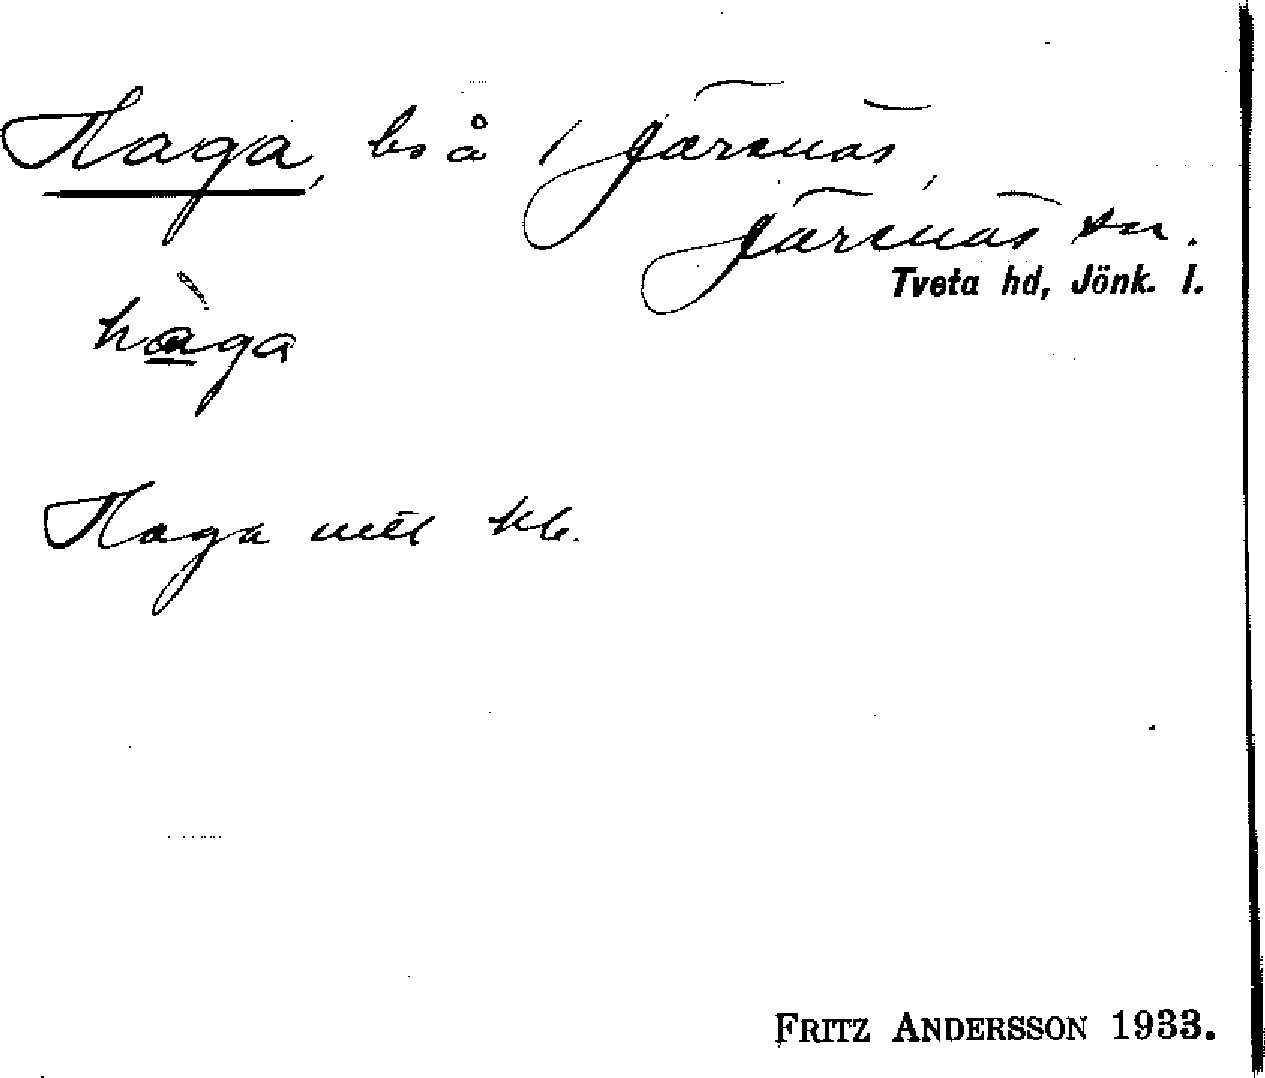 Haga, bs å 1 Järsnäs,
Järsnäs sn.
Tveta hd, Jönk. l.
hàga
Haga
FRITZ ANDERSSON 1933.